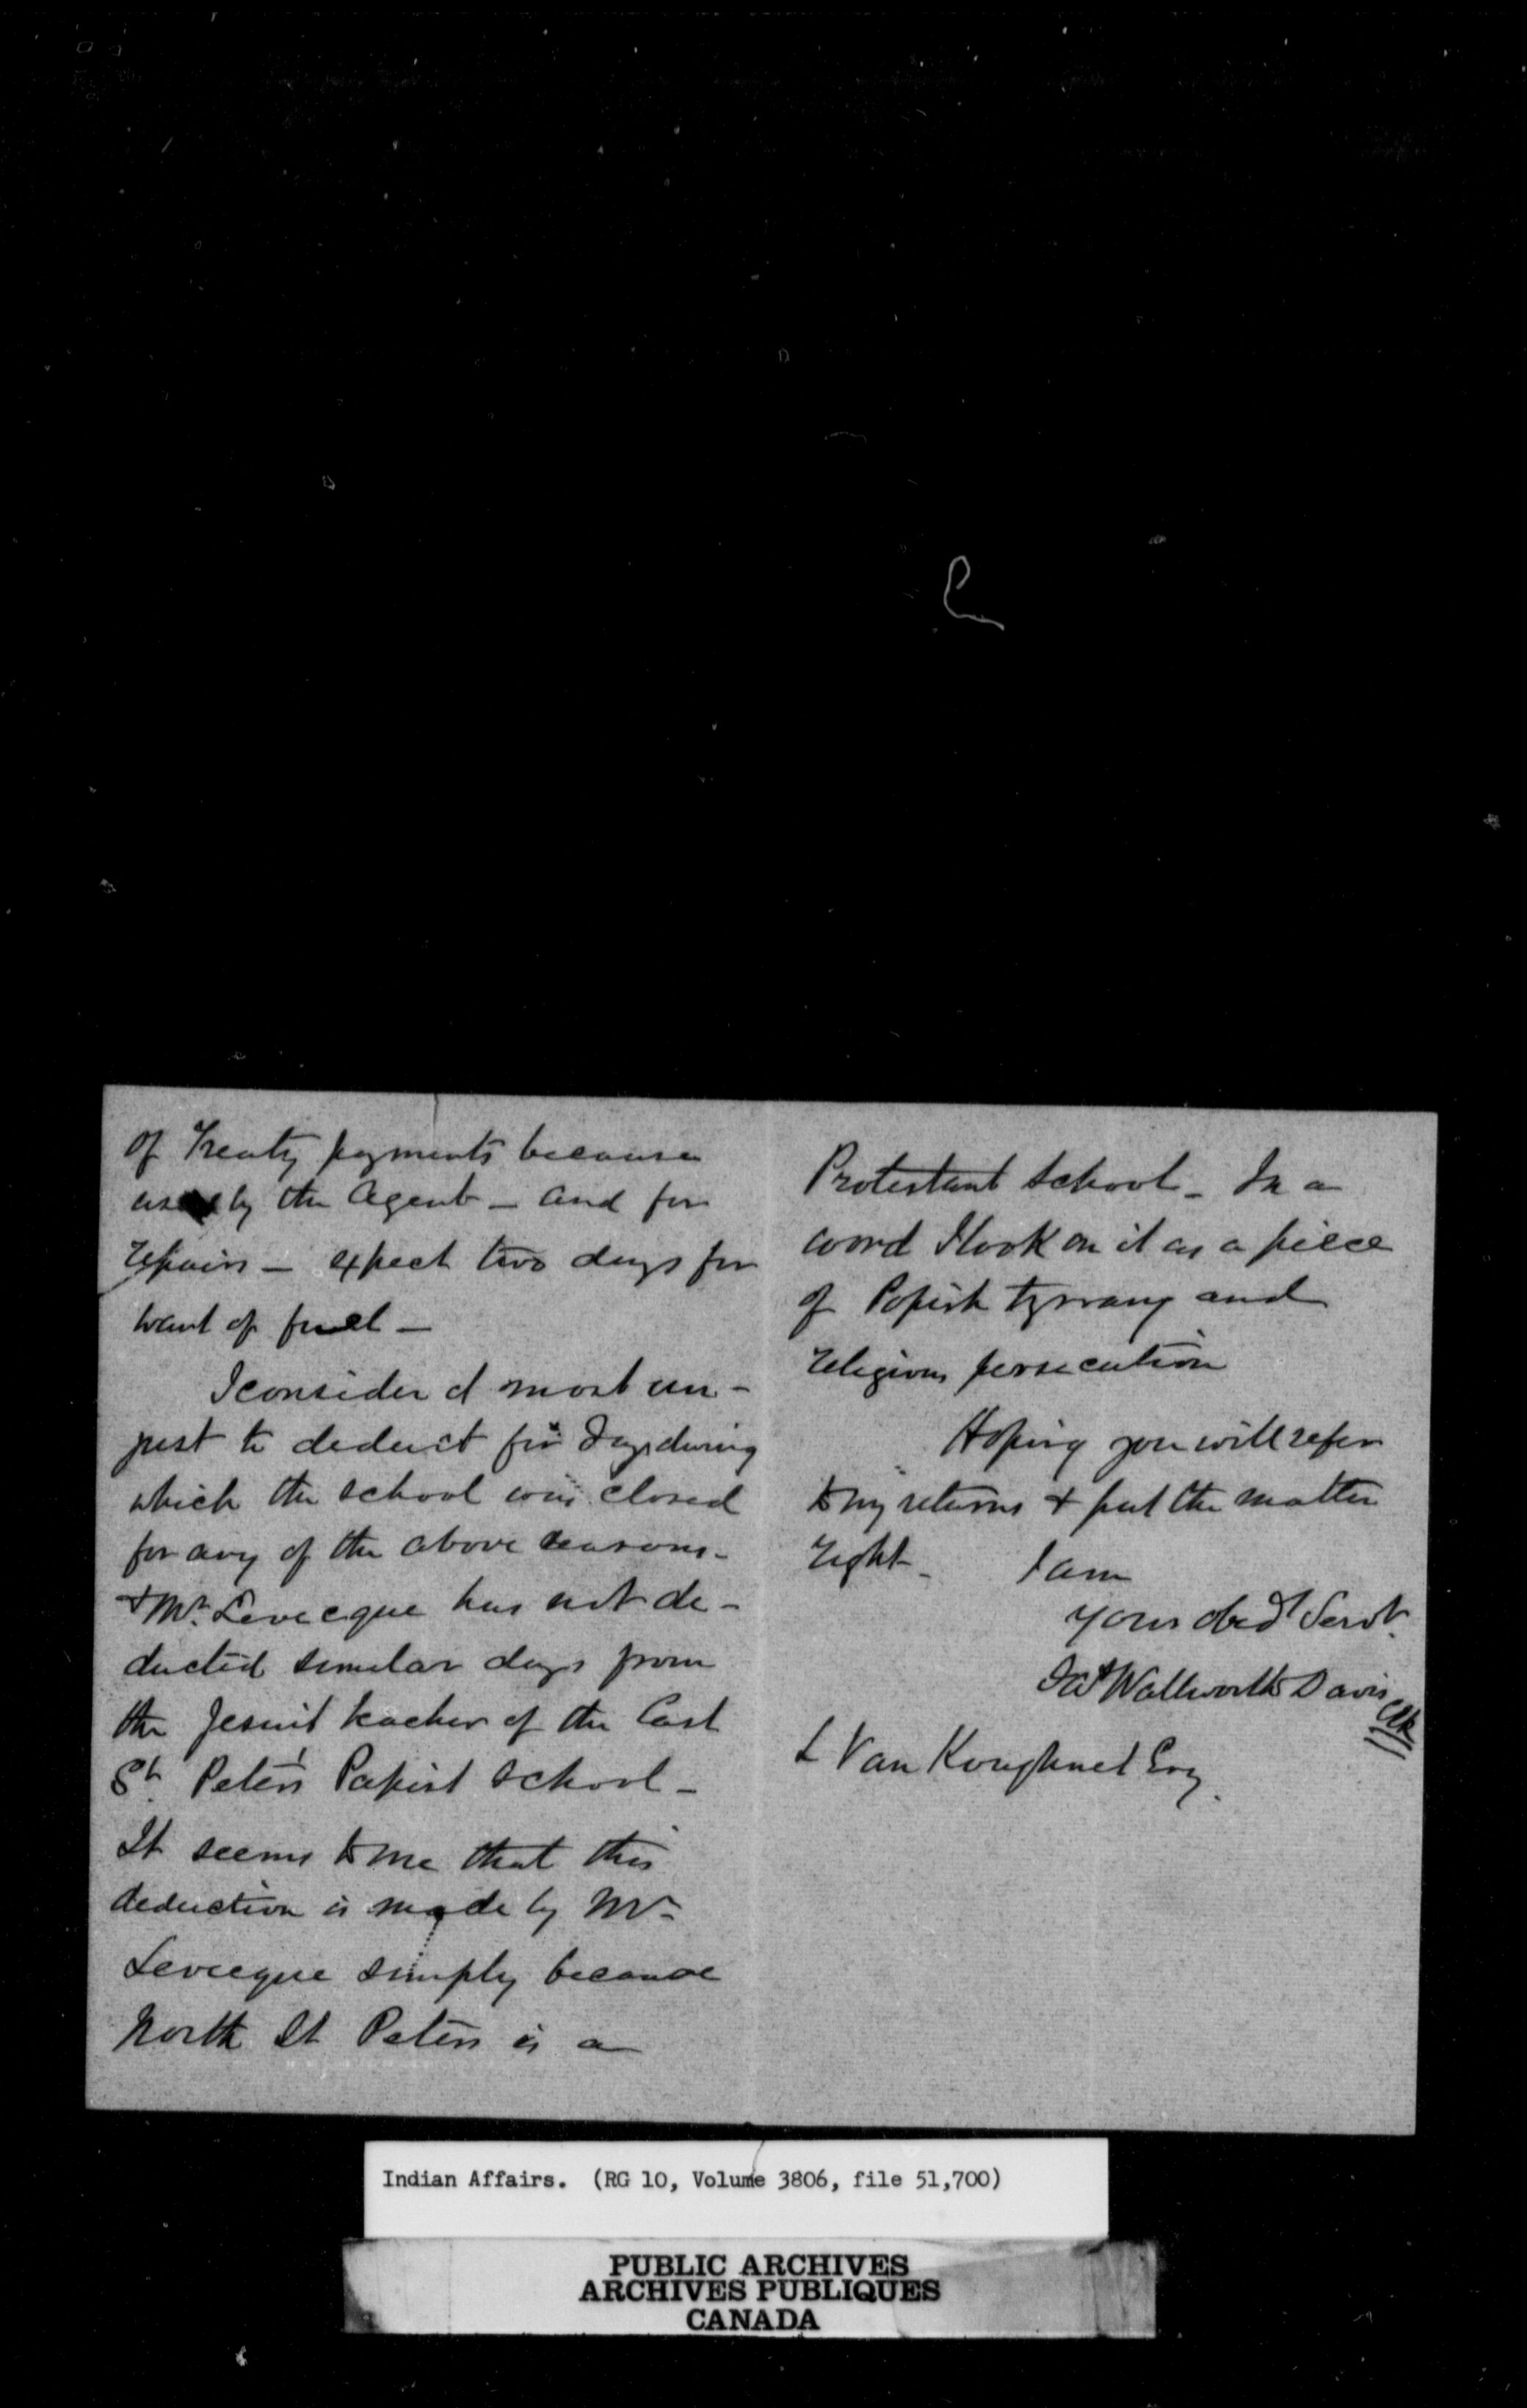 of Treaty payments because
used by the Agent – and for
repairs – expect two days for
want of fuel –
I consider it most un-
just to deduct for days during
which the school was closed
for any of the above reasons –
& Mr. Levecque has not de-
ducted similar days from
the Jesuit teacher of the East
St. Peter's Papist School –
It seems to me that this
deduction is made by Mr
Levecque simply because
North St Peters is a
Protestant School – In a
word I look on it as a piece
of Popish tyranny and
religious persecution
Hoping you will refer
to my returns & put the matter
right – I am
yours obedt Servt.
Wallworth Davis
L Van Koughnet Esq.
Indian Affairs. (RG 10, Volume 3806, file 51,700)
PUBLIC ARCHIVES
ARCHIVES PUBLIQUES
CANADA